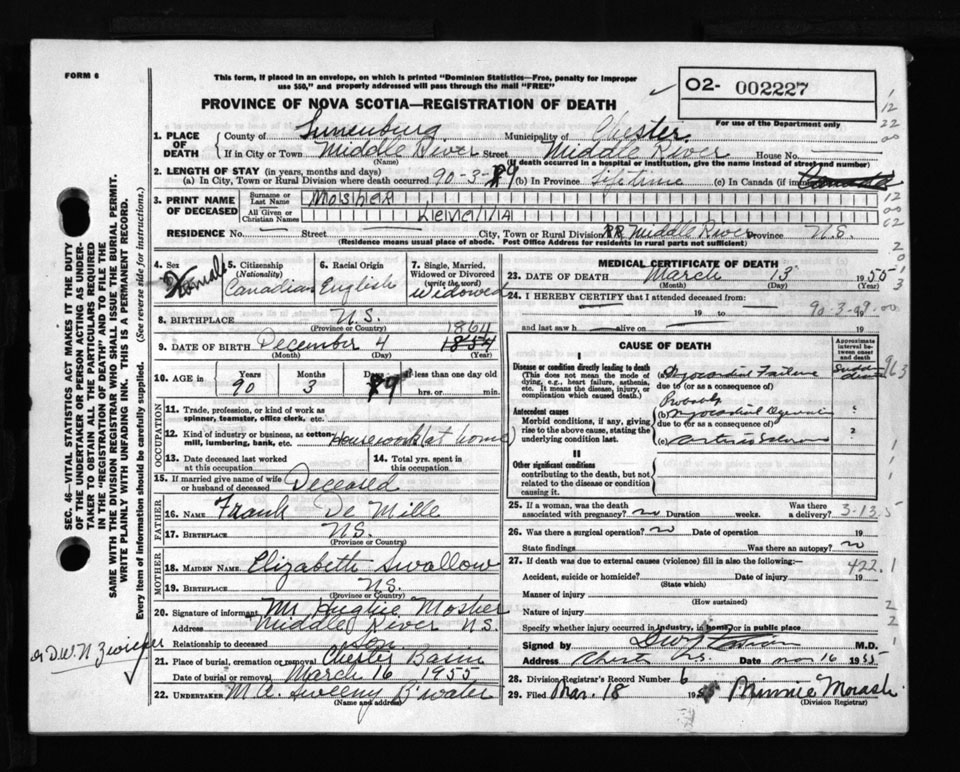 FORM 6
This form, if placed in an envelope, on which is printed "Dominion Statistics—Free, penalty for improper
use $50," and properly addressed will pass through the mail "FREE"
O2- 002227
For use of the Department only
PROVINCE OF NOVA SCOTIA—REGISTRATION OF DEATH
1. PLACE OF DEATH County of Lunenburg Municipality of Chester
If in City or Town Middle River Street Middle River House No.
(Name) (If death occurred in a hospital or institution, give the name instead of street and number)
2. LENGTH OF STAY (in years, months and days)
(a) In City, Town or Rural Division where death occurred 90-3-9 (b) In Province Lifetime (c) In Canada (if
3. PRINT NAME OF DECEASED Surname or Last Name Mosher
All Given or Christian Names
RESIDENCE No. — Street City, Town or Rural Division RR Middle River Province N.S.
(Residence means usual place of abode. Post Office Address for residents in rural parts not sufficient)
4. Sex Female
5. Citizenship (Nationality) Canadian
6. Racial Origin English
7. Single, Married, Widowed or Divorced (write the word) Widowed
8. BIRTHPLACE N.S.
(Province or Country)
9. DATE OF BIRTH December 4 1854 1864
(Month) (Day) (Year)
10. AGE in Years Months Days If less than one day old
90 3 9 hrs. or min.
OCCUPATION
11. Trade, profession, or kind of work as spinner, teamster, office clerk, etc.
12. Kind of industry or business, as cotton-mill, lumbering, bank, etc. Housework (at home)
13. Date deceased last worked at this occupation
14. Total yrs. spent in this occupation
15. If married give name of wife or husband of deceased Deceased
FATHER
16. NAME Frank De Mille
17. BIRTHPLACE N.S.
(Province or Country)
MOTHER
18. MAIDEN NAME Elizabeth Swallow
19. BIRTHPLACE N.S.
(Province or Country)
20. Signature of informant Mr. Hughie Mosher
Address Middle River N.S.
Relationship to deceased Son
21. Place of burial, cremation or removal Chester Basin
Date of burial or removal March 16 1955
22. UNDERTAKER M.A. Sweeny B'water
(Name and address)
MEDICAL CERTIFICATE OF DEATH
23. DATE OF DEATH March 13 1955
(Month) (Day) (Year)
24. I HEREBY CERTIFY that I attended deceased from
19 to 90-3-09-00
and last saw h alive on 19
CAUSE OF DEATH
Approximate interval between onset and death
I
Disease or condition directly leading to death
This does not mean the mode of dying, e.g., heart failure, asthenia, etc. It means the disease, injury, or complication which caused death.)
Myocardial Failure
due to (or as a consequence of)
Probably
Antecedent causes
Morbid conditions, if any, giving rise to the above cause, stating the underlying condition last.
(b) Myocardial
due to (or as a consequence of)
(c)
II
Other significant conditions
contributing to the death, but not related to the disease or condition causing it.
25. If a woman, was the death associated with pregnancy? no Duration weeks. Was there a delivery? 3-13.5
26. Was there a surgical operation? no Date of operation 19
State findings Was there an autopsy? no
27. If death was due to external causes (violence) fill in also the following:— 422.1
Accident, suicide or homicide? Date of injury 19
(State which)
Manner of injury
(How sustained)
Nature of injury
Specify whether injury occurred in industry, in home, or in public place
Signed by M.D.
Address Chester N.S. Date Mar 16 1955
28. Division Registrar's Record Number 6
29. Filed Mar. 18 1955 Minnie Morash
(Division Registrar)
SEC. 46—VITAL STATISTICS ACT MAKES IT THE DUTY
OF THE UNDERTAKER OR PERSON ACTING AS UNDER-
TAKER TO OBTAIN ALL THE PARTICULARS REQUIRED
IN THE "REGISTRATION OF DEATH" AND TO FILE THE
SAME WITH THE DIVISION REGISTRAR WHO SHALL ISSUE THE BURIAL PERMIT.
WRITE PLAINLY WITH UNFADING INK. THIS IS A PERMANENT RECORD.
Every item of information should be carefully supplied. (See reverse side for instructions.)